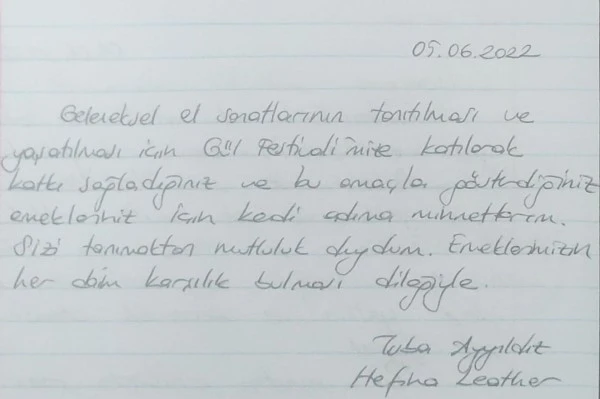 05.06.2022
Geleneksel el sanatlarının tanıtılması ve
yaşatılması için Gül Festivali'mize katılarak
katkı sağladığınız ve bu amaçla gösterdiğiniz
emekleriniz için kendi adıma minnettarım.
Sizi tanımaktan mutluluk duydum. Emeklerinizin
her daim karşılık bulması dileğiyle.
Tuba Ayyıldız
Hefsha Leather